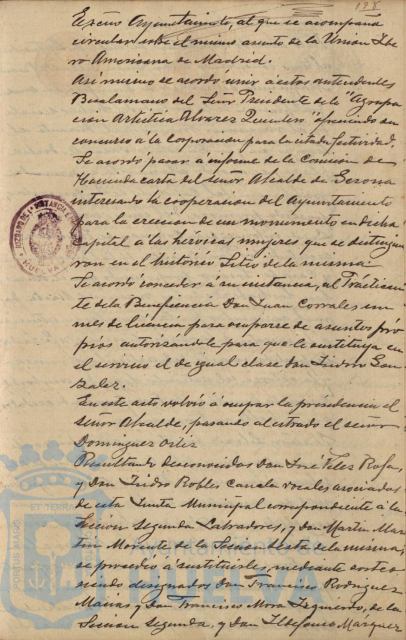 198
Excmo Ayuntamiento, al que se acompaña
circular sobre el mismo asunto de la Union Ibe
ro Americana de Madrid.
Asi mismo se acordó unir á estos antecedentes
Besalamano del Señor Presidente de la "Agrupa
cion Artistica Alvarez Quintero" ofreciendo su
concurso á la Corporacion para la citada festividad.
Se acordó pasar á informe de la Comision de
Hacienda carta del señor Alcalde de Gerona
interesando la cooperacion del Ayuntamiento
para la ereccion de un monumento en dicha
capital á las heróicas mujeres que se distinguie
ron en el histórico Sitio de la misma.
Se acordó conceder á su instancia, al Practican
te de la Beneficencia Don Juan Corrales un
mes de licencia para ocuparse de asuntos pró
pios autorizandole para que le sustituya en
el servicio el de igual clase don Isidro Gon
zalez.
En este acto volvió á ocupar la presidencia el
señor Alcalde, pasando al estrado el señor
Dominguez Ortiz
Resultando desconocidos Don José Felez Rofas,
y Don Isidro Robles Canela vocales asociados
de esta Junta Municipal correspondiente á la
Seccion Segunda Labradores, y Don Martin Mar
tin Morente de la Seccion Sesta de la misma,
se procedió á sustituirles, mediante sorteo
siendo designados Don Francisco Rodriguez
Macias y Don Francisco Mora Izquierdo, de la
Seccion Segunda, y Don Ildefonso Marquez
HUELVA
PORTUS MARIS ET TERRAE
HUELVA